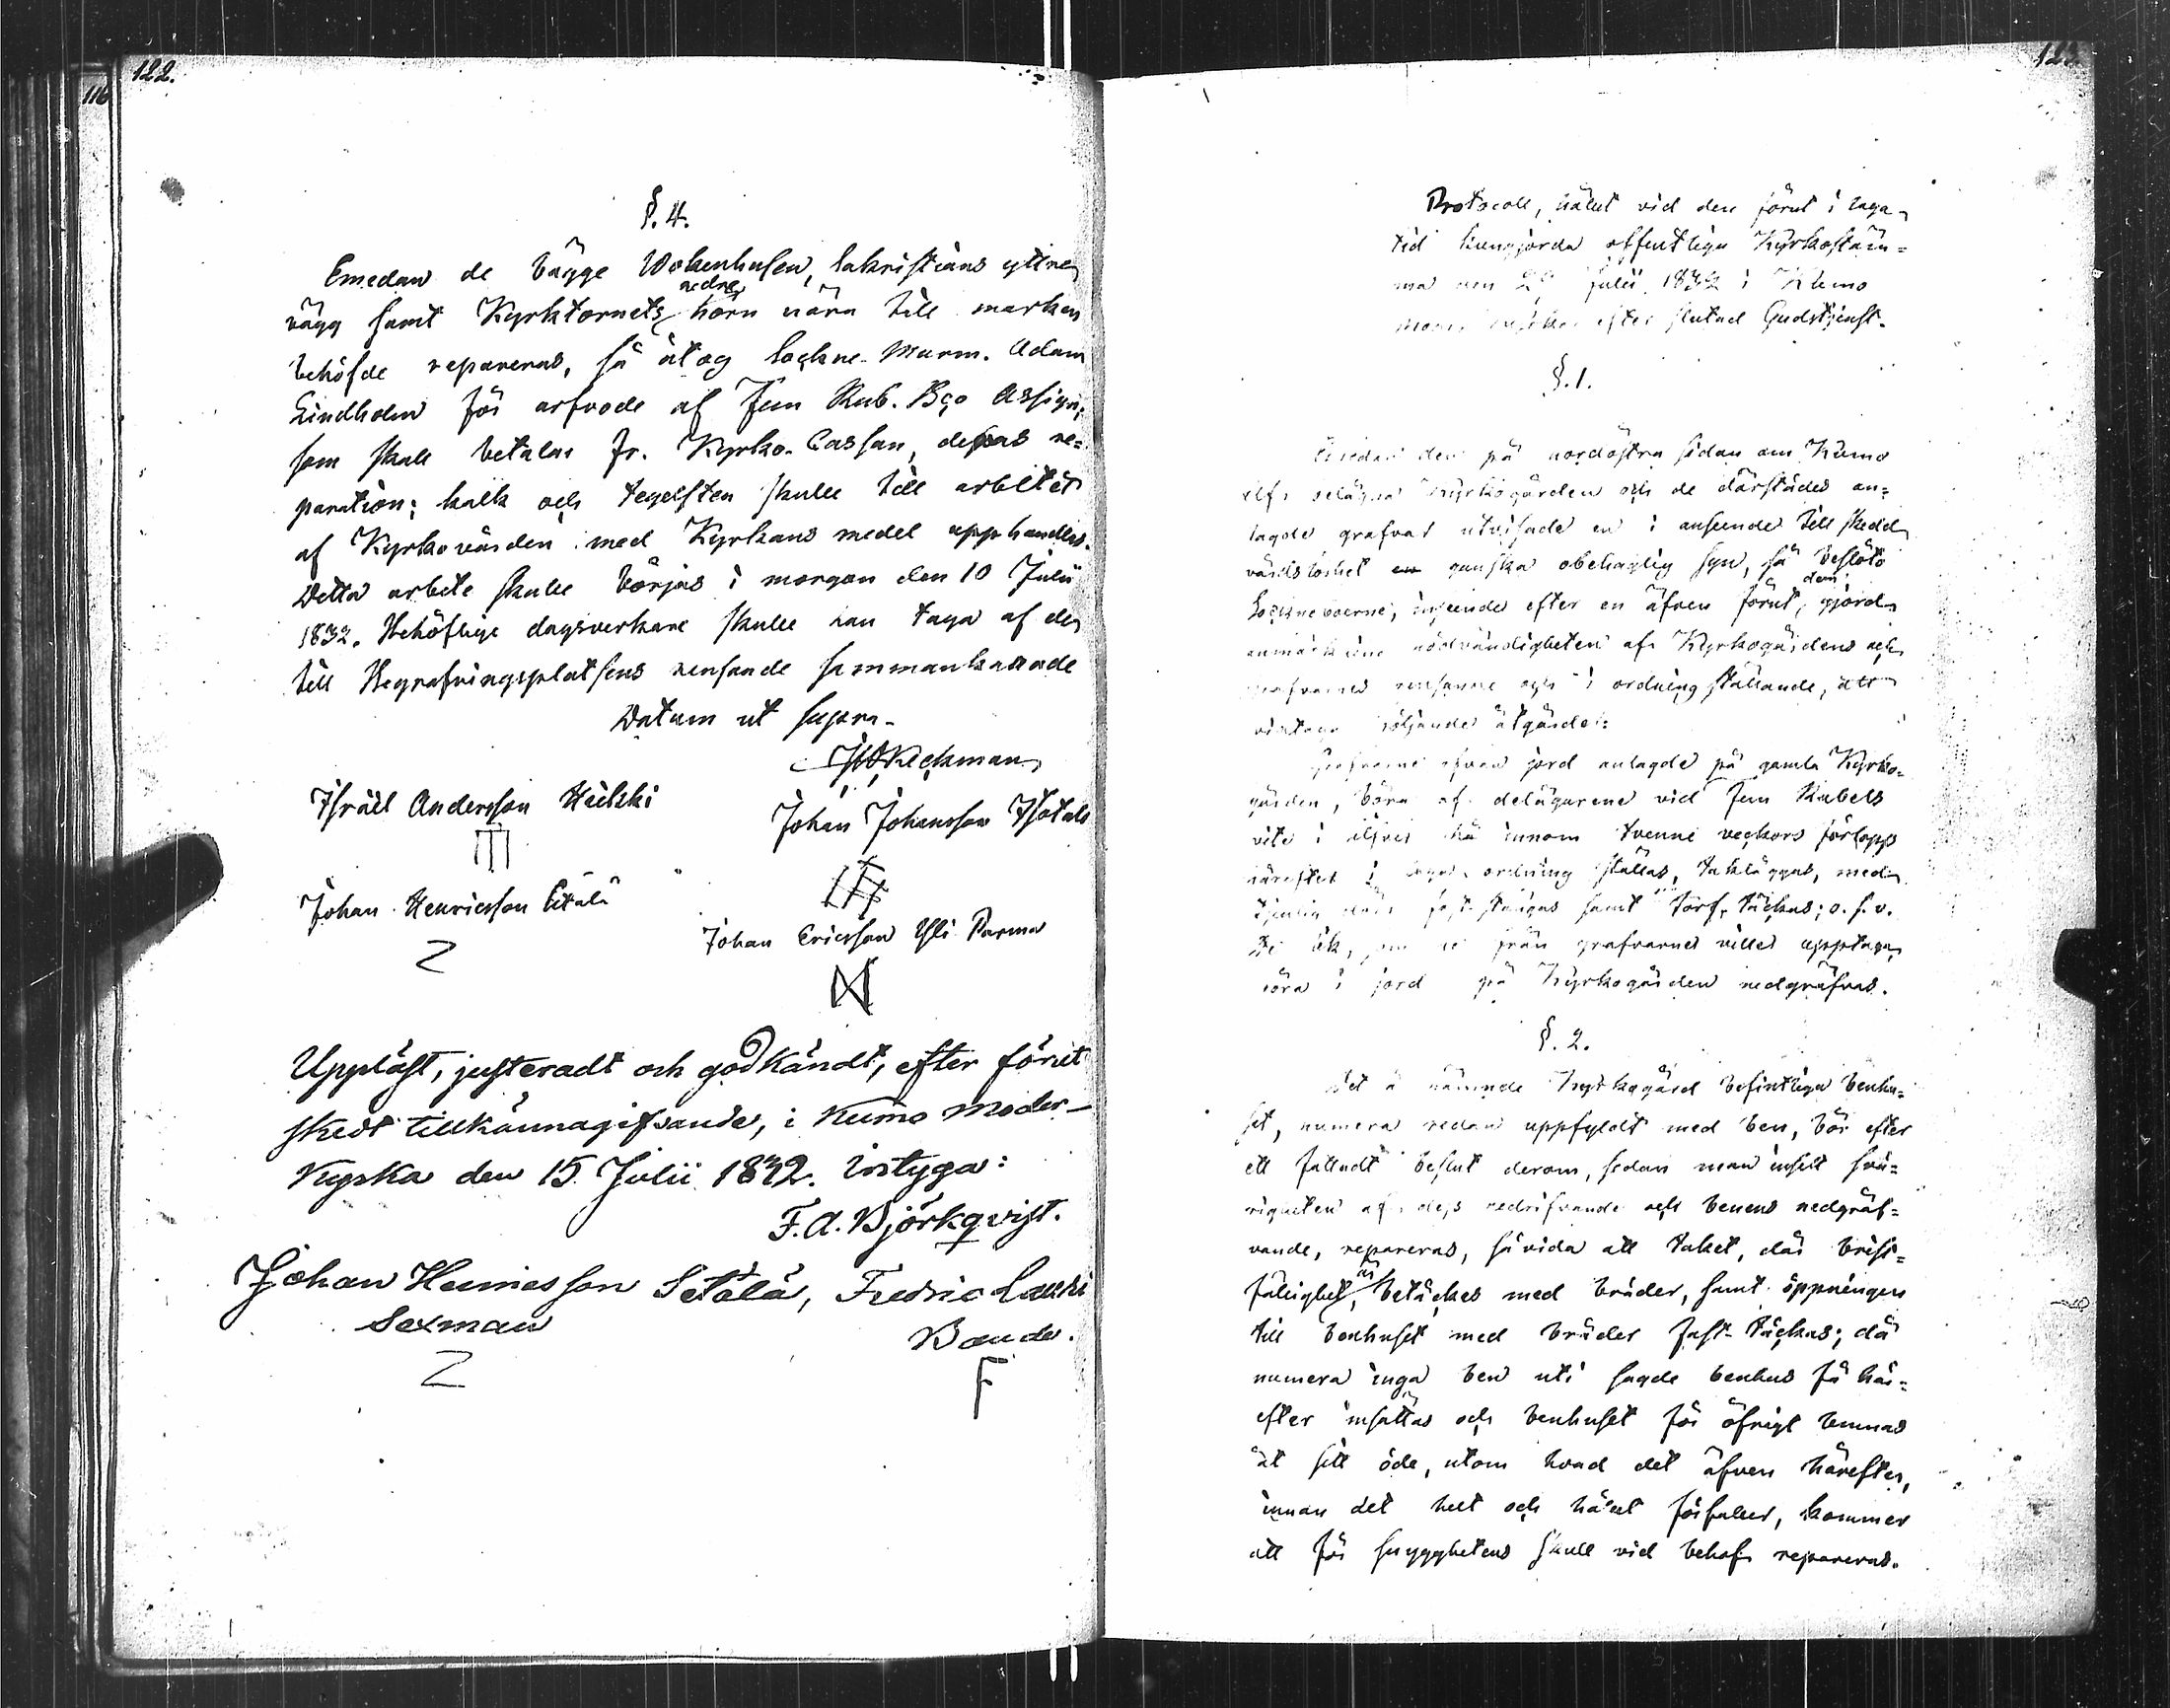 122.
116
§. 4.
Emedan de bägge Wokenhusen, sakristians yttre
vägg samt Kyrktornets nedre hörn nära till marken
behöfde repareras, så åtog Sockne Murm. Adam
Lindholm för arfvode af fem Rub. Bco Assign:
som skall betalas fr. Kyrko-Cassan, dessas re=
paration; kalk och tegelsten skulle till arbetet
af Kyrkovärden med Kyrkans medel upphandlas.
Detta arbete skulle börjas i morgon den 10 Julii
1832. Behöflige dagsverkare skulle han taga af de
till Begrafningsplatsens rensande sammankallade
Datum ut supra.
Keckman
Israël Andersson Hiukki
Johan Johansson Isotalo
Johan Henricsson Sitälä
Johan Ericsson Yli Parma
Uppläst, justeradt och godkändt, efter förut
skedt tillkännagifvande, i Kumo Moder-
Kyrka den 15 Julii 1832. Intyga:
F. A. Björkqvist.
Johan Henricsson Setälä, Fredric Lauri
Sexman
Bonde.
Z
F
Protocoll, hållet vid den förut i laga
tid kungjorda offentliga Kyrkostäm=
ma den 22 Julii 1832 i Kumo
Moder Kyrka efter slutad Gudstjenst.
§. 1.
Emedan den på nordöstra sidan om Kumo
elf belägna Kyrkogården och de därstädes an=
lagde grafvar utvisade en i anseende till skedd
vårdslöshet ganska obehaglig syn, så beslöto
Sockneboerne, inseende efter en äfven förut dem gjord
anmärkning nödvändigheten af Kyrkogårdens och
grafvarnes rensande och i ordning ställande, att
vidtaga följande åtgärder:
Grafvarne ofvan jord anlagde på gamla Kyrko=
gården, böra af delägarene vid fem Rubels
vite innom tvenne veckors förlopp
härefter i laga ordning ställas, takläggas, med
fast stängas samt torf täckas; o. s. v.
De lik, som från grafvarnes villes upptaga,
böra i jord på Kyrkogården nedgräfvas.
§. 2.
Det å nämnde Kyrkogård befintliga benhu=
set, numera redan uppfyldt med ben, bör efter
ett fattadt beslut derom, sedan man insett svå=
righeten af dess nedrifvande och benens nedgräf=
vande, repareras, såvida att taket, där brist=
fällighet är, betäckes med bräder, samt öppningen
till benhuset med bräder fast täckas; då
numera inga ben uti sagde benhus få här=
efter insättas och benhuset för öfrigt lemnas
åt sitt öde, utom hvad det äfven härefter,
innan det helt och hållet förfaller, kommer
att för snygghetens skull vid behof repareras.